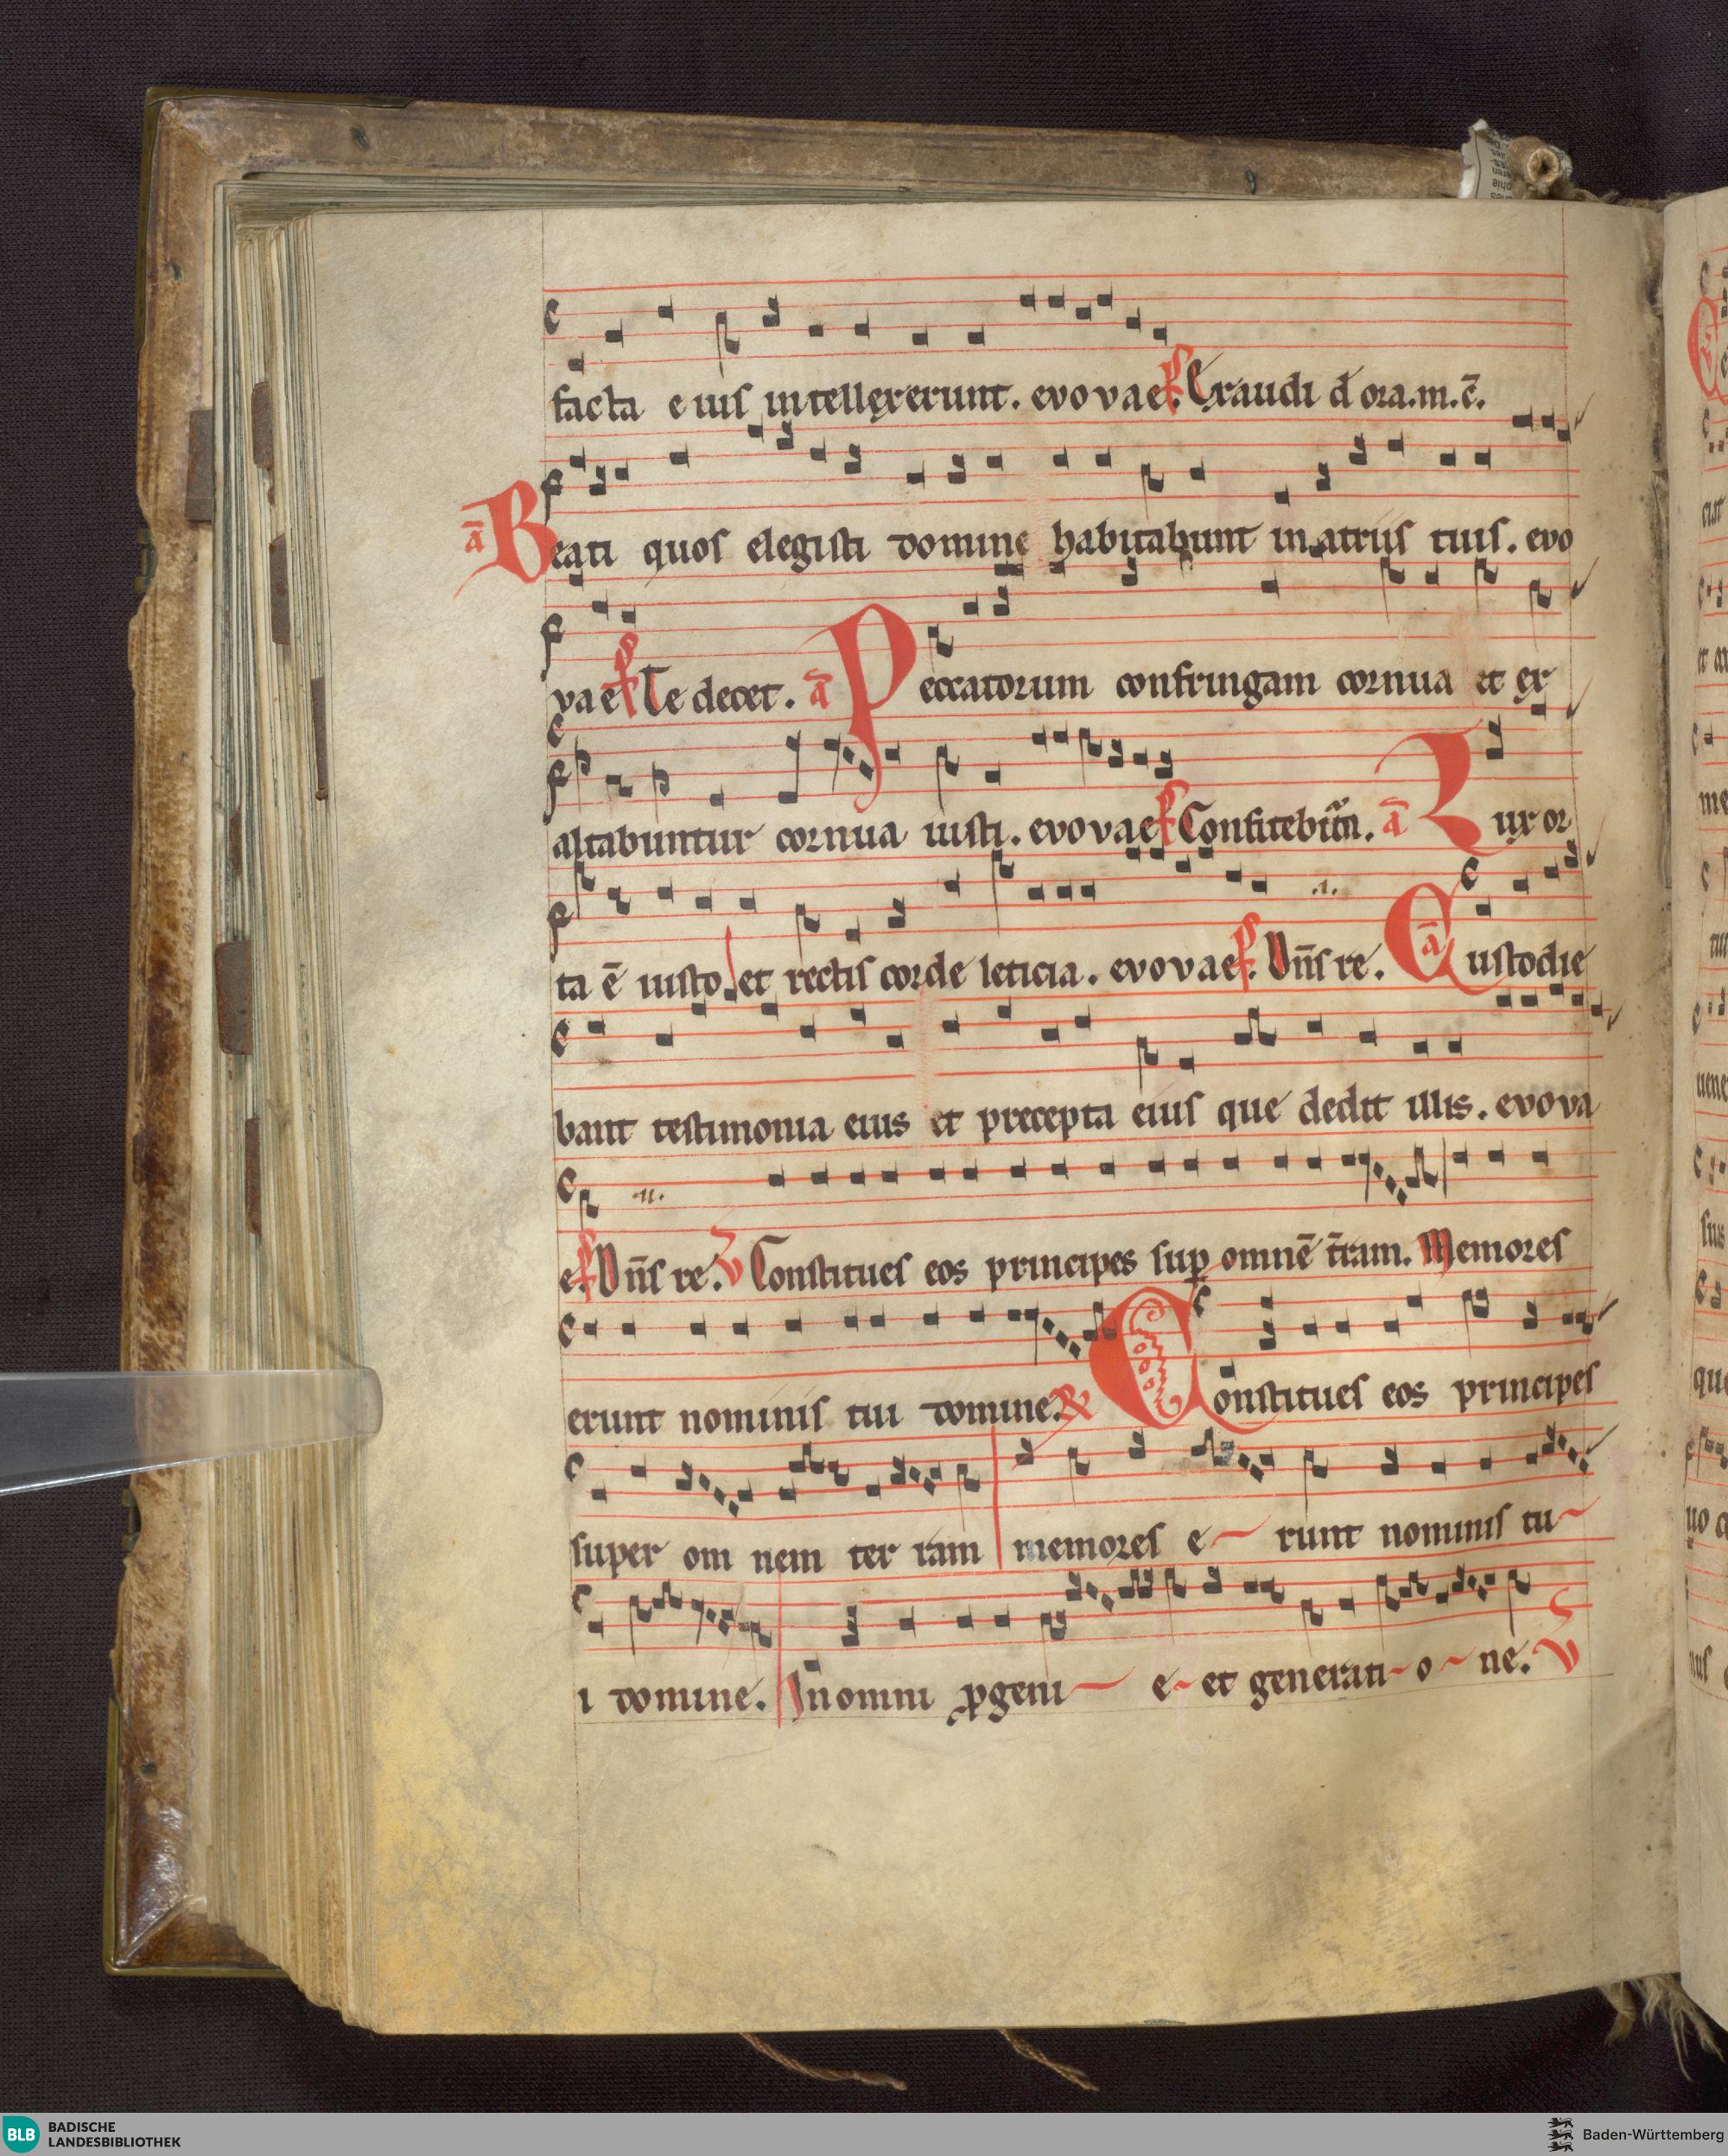 facta eius intellexerunt. evovae. ps Exaudi d ora.m.c̄.
ā Beati quos elegisti domine habitabunt in atriis tuis. evo
vae ps Te decet. ā Peccatorum confringam cornua et ex
altabuntur cornua iusti. evovae ps Confitebim̃. ā Lux or
.i.
ta ē iusto. et rectis corde leticia. evovae ps. Dn̄s re. ā Custodie
bant testimonia eius et precepta eius que dedit illis. evova
.ii.
e. ps Dn̄s re. V Constitues eos principes sup̱ omnē t̄ram. Memores
erunt nominis tui domine. R Constitues eos principes
super om nem ter ram memores e runt nominis tu
i domine. In omni ꝓgeni e et generati o ne. V
BLB BADISCHE
LANDESBIBLIOTHEK
Baden-Württemberg